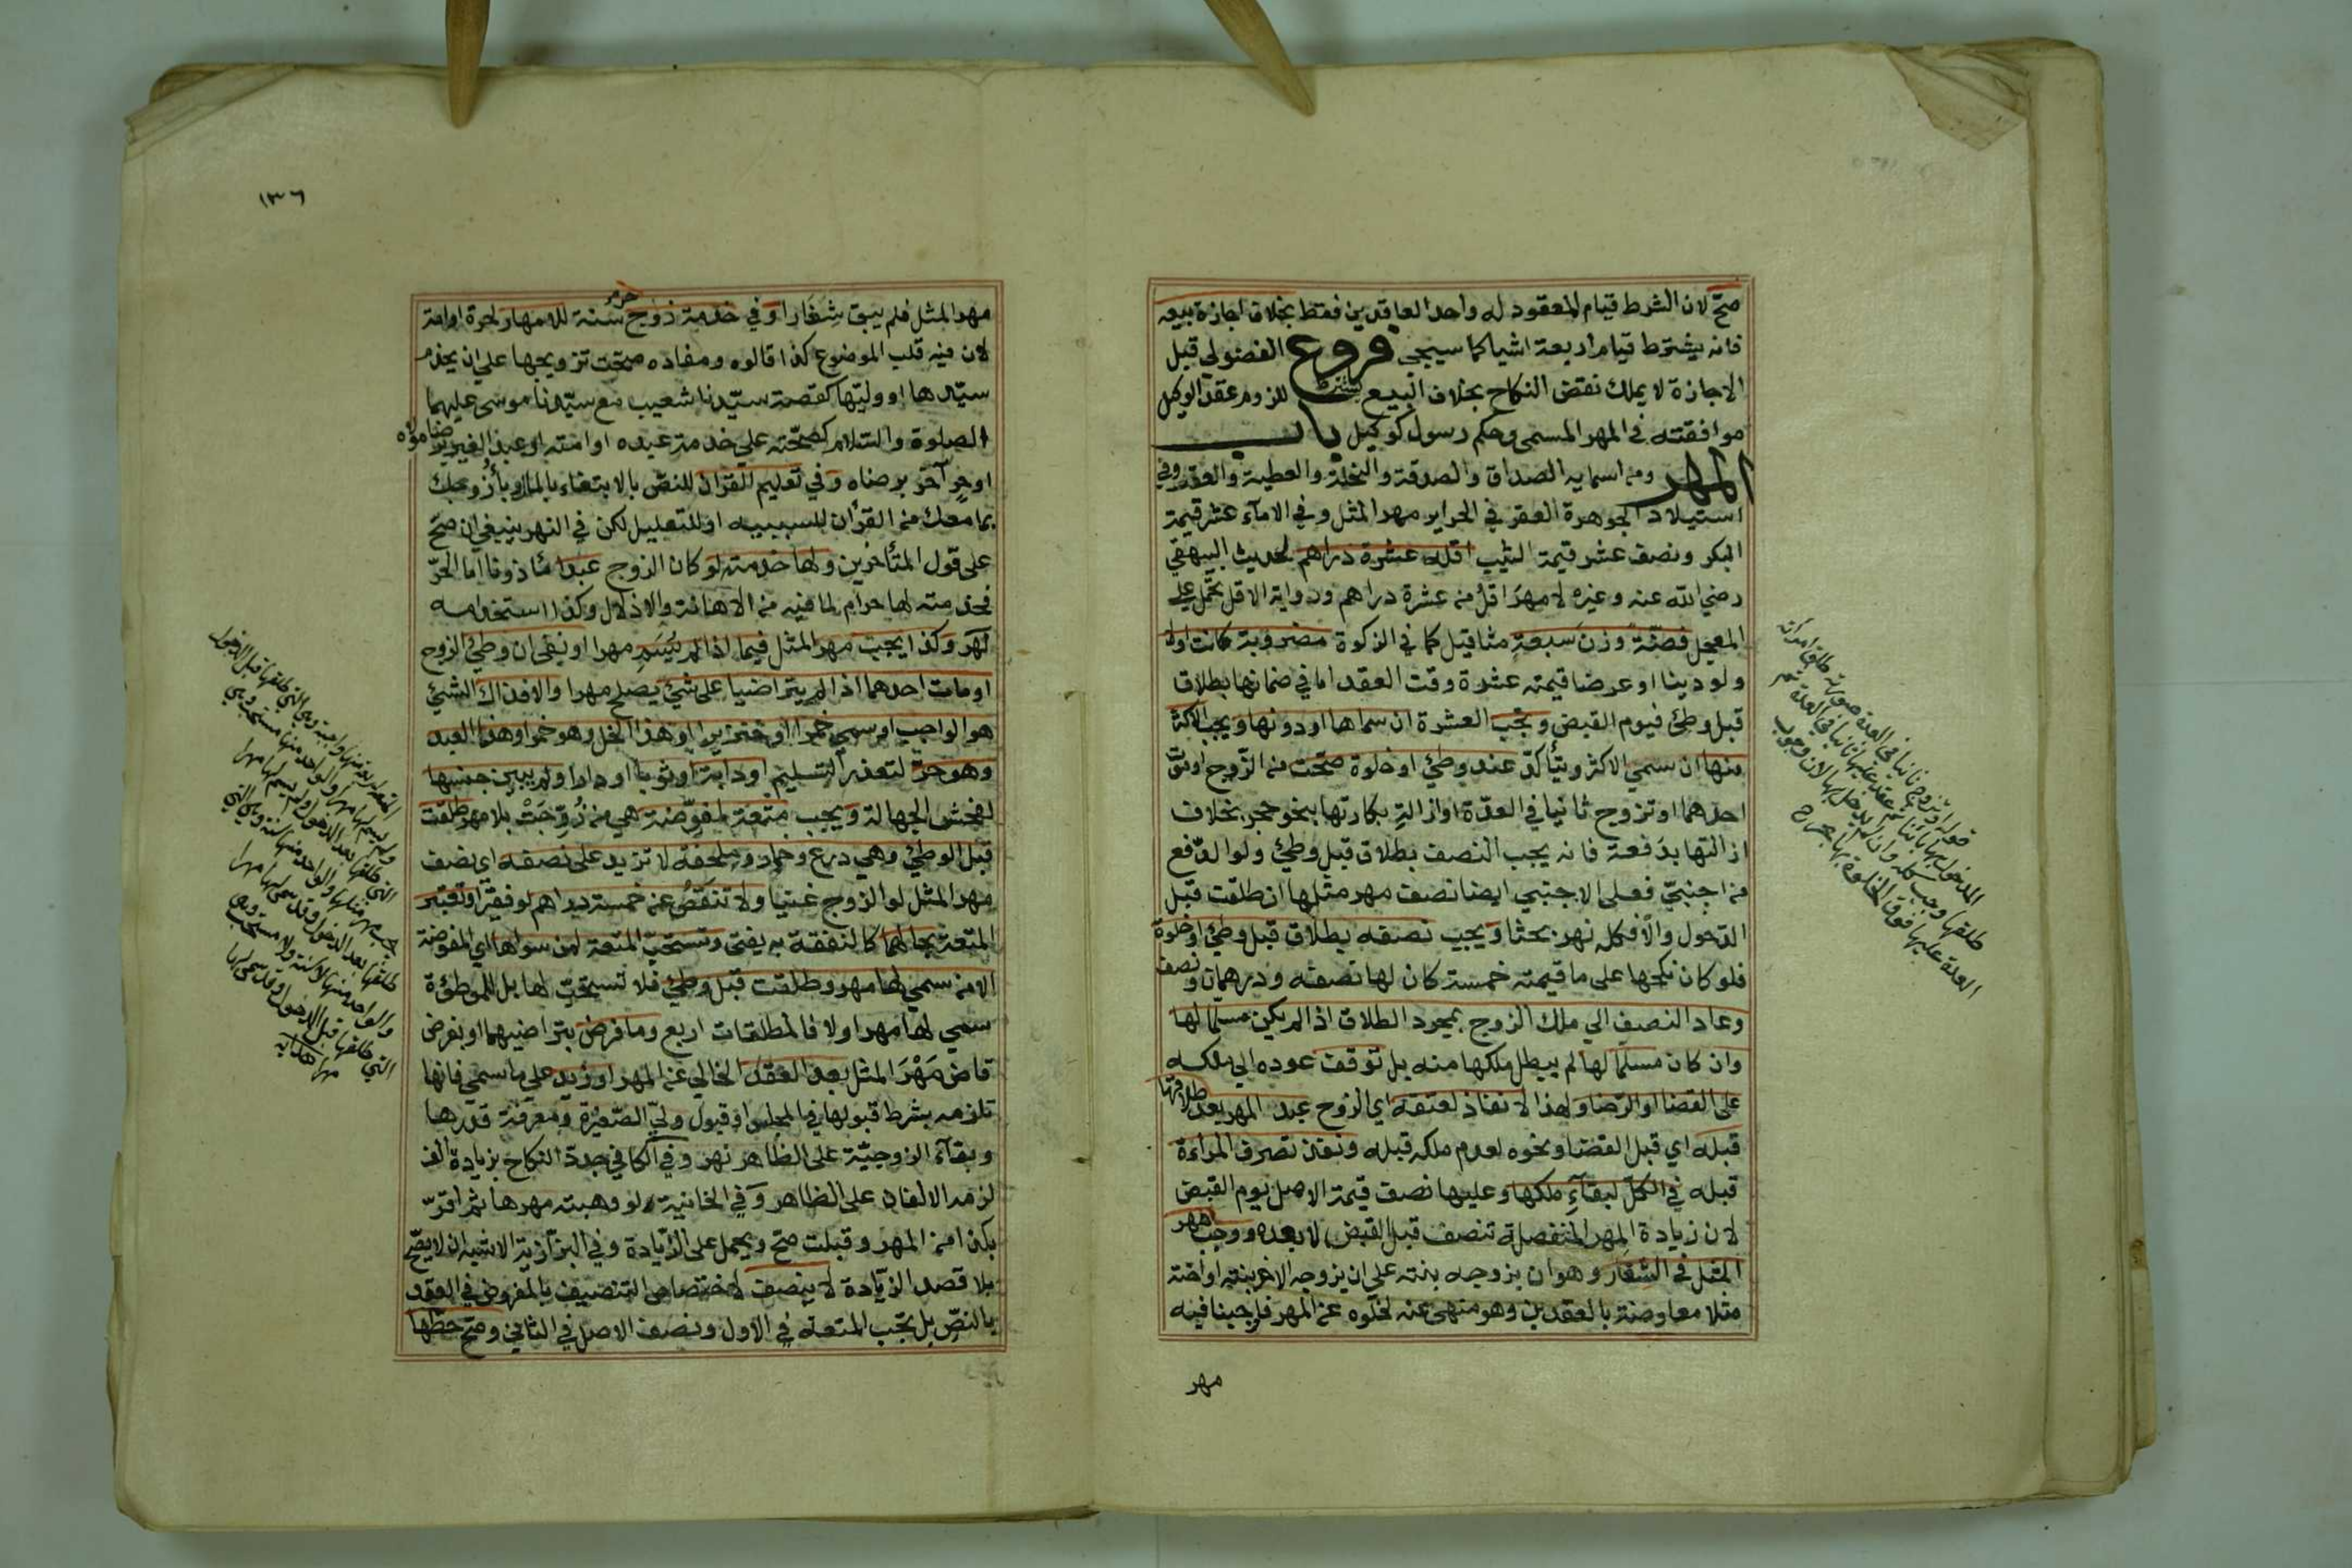 صحّ لان الشرط قيام المعقود له واحد العاقدين فقط بخلاف اجازة بيعه
فانه يشترط قيام اربعة اشيا كما سيجي فروع الفضولي قبل
الاجازة لا يملك نقض النكاح بخلاف البيع يشترط للزوم عقد الوكيل
موافقته في المهر المسمى وحكم رسول كوكيل باب
المهر ومن اسمايه الصداق والصدقة والنحلة والعطية والعقر وفي
استيلاد الجوهرة العقر في الحراير مهر المثل وفي الاماء عشر قيمة
البكر ونصف عشر قيمة الثيب اقله عشرة دراهم لحديث البيهقي
رضي الله عنه وغيره لا مهرَ اقلّ من عشرة دراهم ورواية الاقل تحمل على
المعجل فضّة وزنَ سبعةِ مثاقيل كما في الزكوة مضروبة كانت اولا
ولو دينا او عرضا قيمته عشرة وقت العقد اما في ضمانها بطلاق
قبل وطئ فيوم القبض وتجب العشرة ان سماها او دونها ويجب الاكثر
منها ان سمي الاكثر ويتأكدّ عند وطئ او خلوة صحّت من الزّوج او موت
احدهما او تزوج ثانيا في العدّة او ازالةِ بكارتها بنحو حجر بخلاف
ازالتها بدَفعة فانه يجب النصف بطلاق قبل وطئ ولو الدّفع
من اجنبيّ فعلى الاجنبي ايضا نصف مهر مثلها ان طلّقت قبل
الدّخول والّا فكله نهر بحثا ويجب نصفه بطلاق قبل وطئ او خلوة
فلو كان نكحها على ما قيمته خمسة كان لها نصفه ودرهمان ونصف
وعاد النصف الي ملك الزوج بمجرد الطلاق اذا لم يكن مسلما لها
وان كان مسلما لها لم يبطل ملكها منه بل توقف عوده الي ملكه
على القضا او الرّضا ولهذا لا نفاذ لعتقه اي الزوج عبد المهر بعد طلاقها
قبله اي قبل القضا ونحوه لعدم ملكه قبله ونفذ تصرف المراءة
قبله في الكلّ لبقآءِ ملكها وعليها نصف قيمة الاصل يوم القبض
لان زيادة المهر المنفصلة تنصف قبل القبض لا بعده ووجب مهر
المثل في الشغار وهو ان يزوجه بنته على ان يزوجه الاخر بنته او اخته
مثلا معاوضة بالعقدين وهو منهى عنه لخلّوه عن المهر فاوجبنا فيه
مهر
قوله او تزوج ثانيا في العدة صورته طلق امراته
المدخول بها باينا ثم عقد عليها ثانيا في العدة ثم
طلقها وجب كله وان لم يدخل بها لان وجوب
العدة عليها فوق الخلوة بها
١٣٦
مهر المثل فلم يبق شِغَارا وَفي خدمة زوج حر سنة للامهار لحرة او امة
لان فيه قلب الموضوع كذا قالوه ومفاده صحّت تزويجها على ان يخدم
سيّدها او وليّها كقصة سيّدنا شعيب مع سيّدنا موسى عليهما
الصلوة والسّلام كصحّته على خدمة عبده او امته او عبد الغير برضا مولاه
او حر آخر برضاه وَفي تعليم القرآن للنصّ بالابتغاء بالمال وبأزوجك
بما معك من القرآن للسببيه او للتعليل لكن في النهر ينبغي ان صحّ
على قول المتأخرين ولها خدمته لو كان الزوج عبدا ماذونا اما الحرّ
فخدمته لها حرام لما فيه من الاهانة والاذلال وكذا استخدامه
نَهَر وكذا يجب مهر المثل فيما اذا لم يُسَمِ مهرا او نفى ان وطئ الزوج
او مات احدهما اذا لم يتراضيا على شئ يصلح مهرا والا فذاك الشئ
هو الواجب او سمي خمرا او خنزيرا او هذا الخل وهو خمر او هذا العبد
وهو حرّ لتعذر التسليم او دابة او ثوبا او دارا ولم يبين جنسها
لفحش الجهالة ويجب متعة لمفوّضة هي من زُوِّجَتْ بلا مهر طلقت
قبل الوطئ وهي درع وخمار وملحفة لا تزيد على نصفه اي نصف
مهر المثل لو الزوج غنيا ولا تنقصُ عن خمسة دراهم لو فقيرا وتعتبر
المتعة بحالهما كالنفقة به يفتى وتستحبّ المتعة لمن سواها اي المفوضة
الا من سمي لها مهر وطلقت قبل وطئ فلا تستحبّ لها بل للموطؤة
سمي لها مهر اولا فالمطلقات اربع وما فرض بتراضيهما او بفرض
قاض مَهْرَ المثل بعد العقد الخالي عن المهر او زيد على ما سمي فانها
تلزمه بشرط قبولها في المجلس او قبول وليّ الصّغيرة ومعرفة قدرها
وبقآء الزوجيّة على الظّاهر نهر وفي الكافي جددّ النكاح بزيادة الف
لزمه الالفان على الظاهر وَفي الخانية ولو وهبته مهرها ثم اقرّ
بكذا من المهر وقبلت صحّ ويحمل على الزّيادة وفي البزّازية الاشبه ان لا يصحّ
بلا قصد الزّيادة لا ينصف لاختصاص التنصيف بالمفروض في العقد
بالنصّ بل تجب المتعة في الاول ونصف الاصل في الثاني وصحّ حطّها
ولم يسم لها مهرا والواحد منها مستحبة وهي
التي طلقها بعد الدخول ولم يسم لها مهرا
طلقها بعد الدخول وقد سمى لها مهرا
التي طلقها قبل الدخول وقد سمى لها
مهرا هدايه